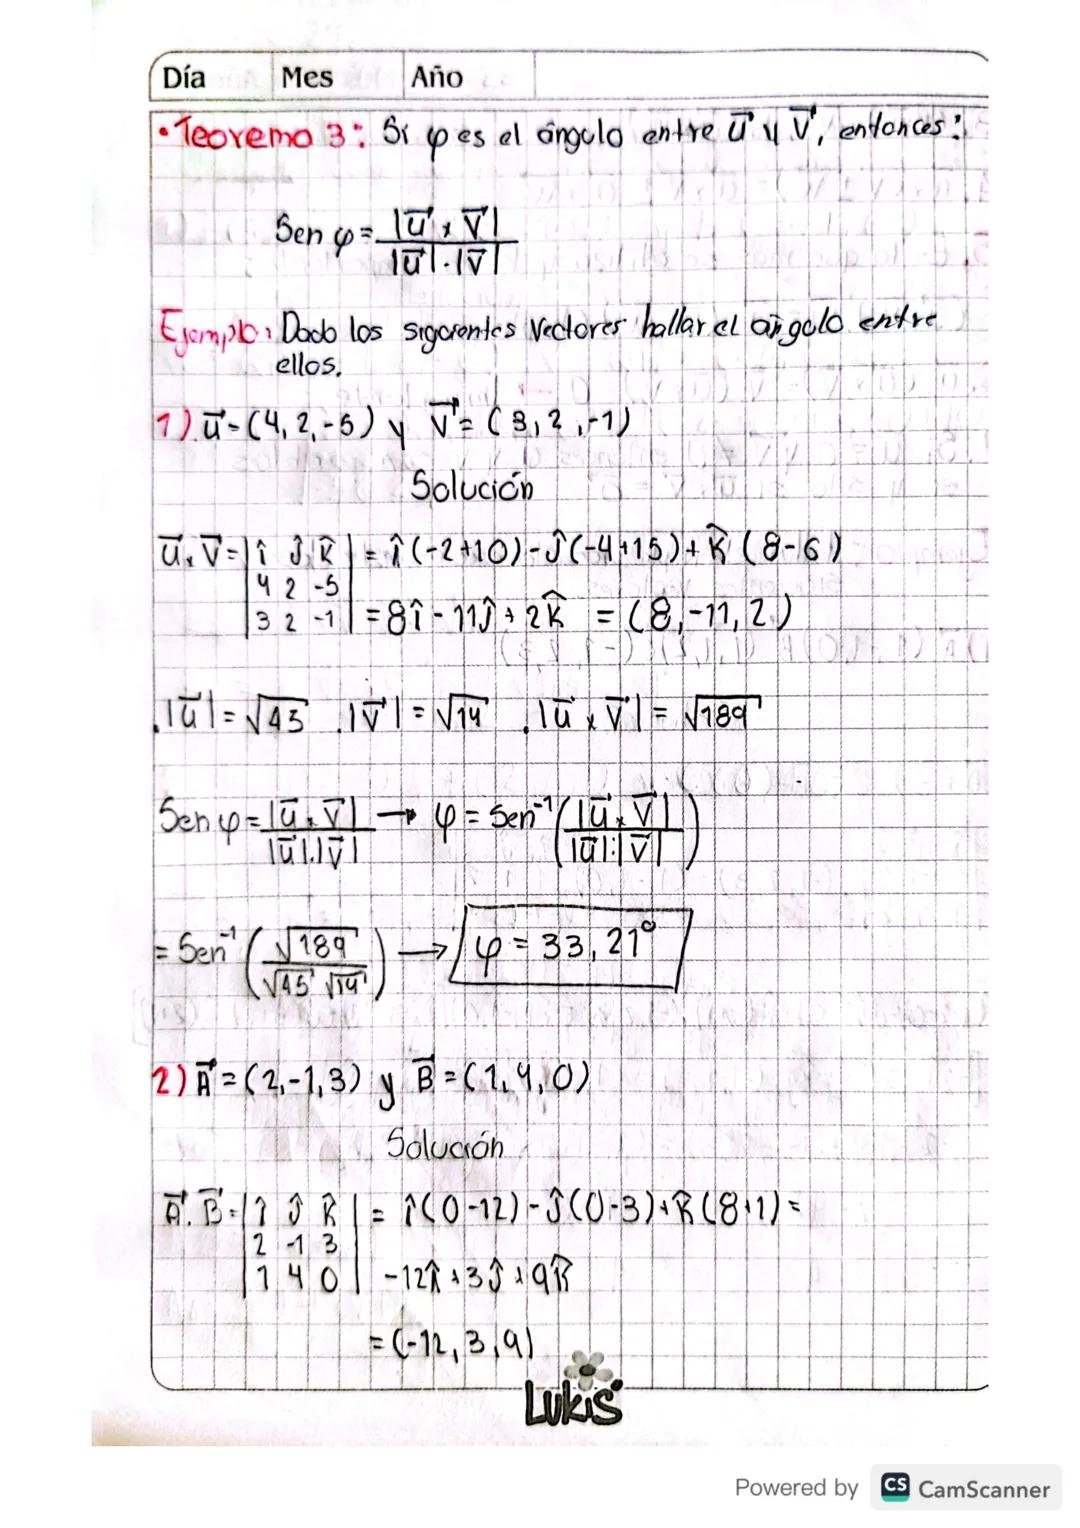 Día Mes Año
•Teorema 3: Si φ es el ángulo entre u⃗ y v⃗, entonces:
Sen φ = |u⃗ x v⃗| / |u⃗|.|v⃗|
Ejemplo: Dado los siguientes vectores hallar el ángulo entre
ellos.
1) u⃗ = (4, 2, -5) y v⃗ = (3, 2, -1)
Solución
u⃗ x v⃗ = |î ĵ k̂| = î(-2+10) - ĵ(-4+15) + k̂(8-6)
4 2 -5
3 2 -1 = 8î - 11ĵ + 2k̂ = (8, -11, 2)
.|u⃗| = √45 .|v⃗| = √14 .|u⃗ x v⃗| = √189
Sen φ = |u⃗ x v⃗| / |u⃗|.|v⃗| → φ = Sen⁻¹(|u⃗ x v⃗| / |u⃗|.|v⃗|)
= Sen⁻¹(√189 / √45 √14) → φ = 33,21°
2) A⃗ = (2, -1, 3) y B⃗ = (1, 4, 0)
Solución
A⃗ . B⃗ = |î ĵ k̂| = î(0-12) - ĵ(0-3) + k̂(8+1) =
2 -1 3
1 4 0 -12î + 3ĵ + 9k̂
= (-12, 3, 9)
Lukis
Powered by CS CamScanner